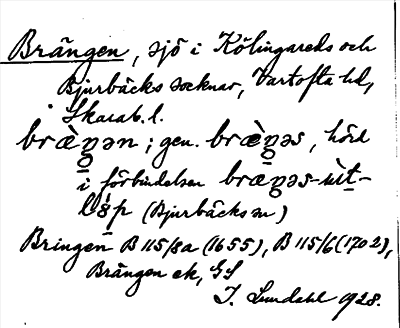 Brängen, sjö i Kölingareds och
Bjurbäcks socknar, Vartofta hd,
Skarab. l.
bræ̀ŋən ; gen. bræ̀ŋəs, hörd
i förbindelsen bræŋəs-ùt-
lǿp (Bjurbäcks sn)
Bringen B 115/8a (1655), B 115/6 (1702),
Brängen ek, GS
I. Lundahl 1928.